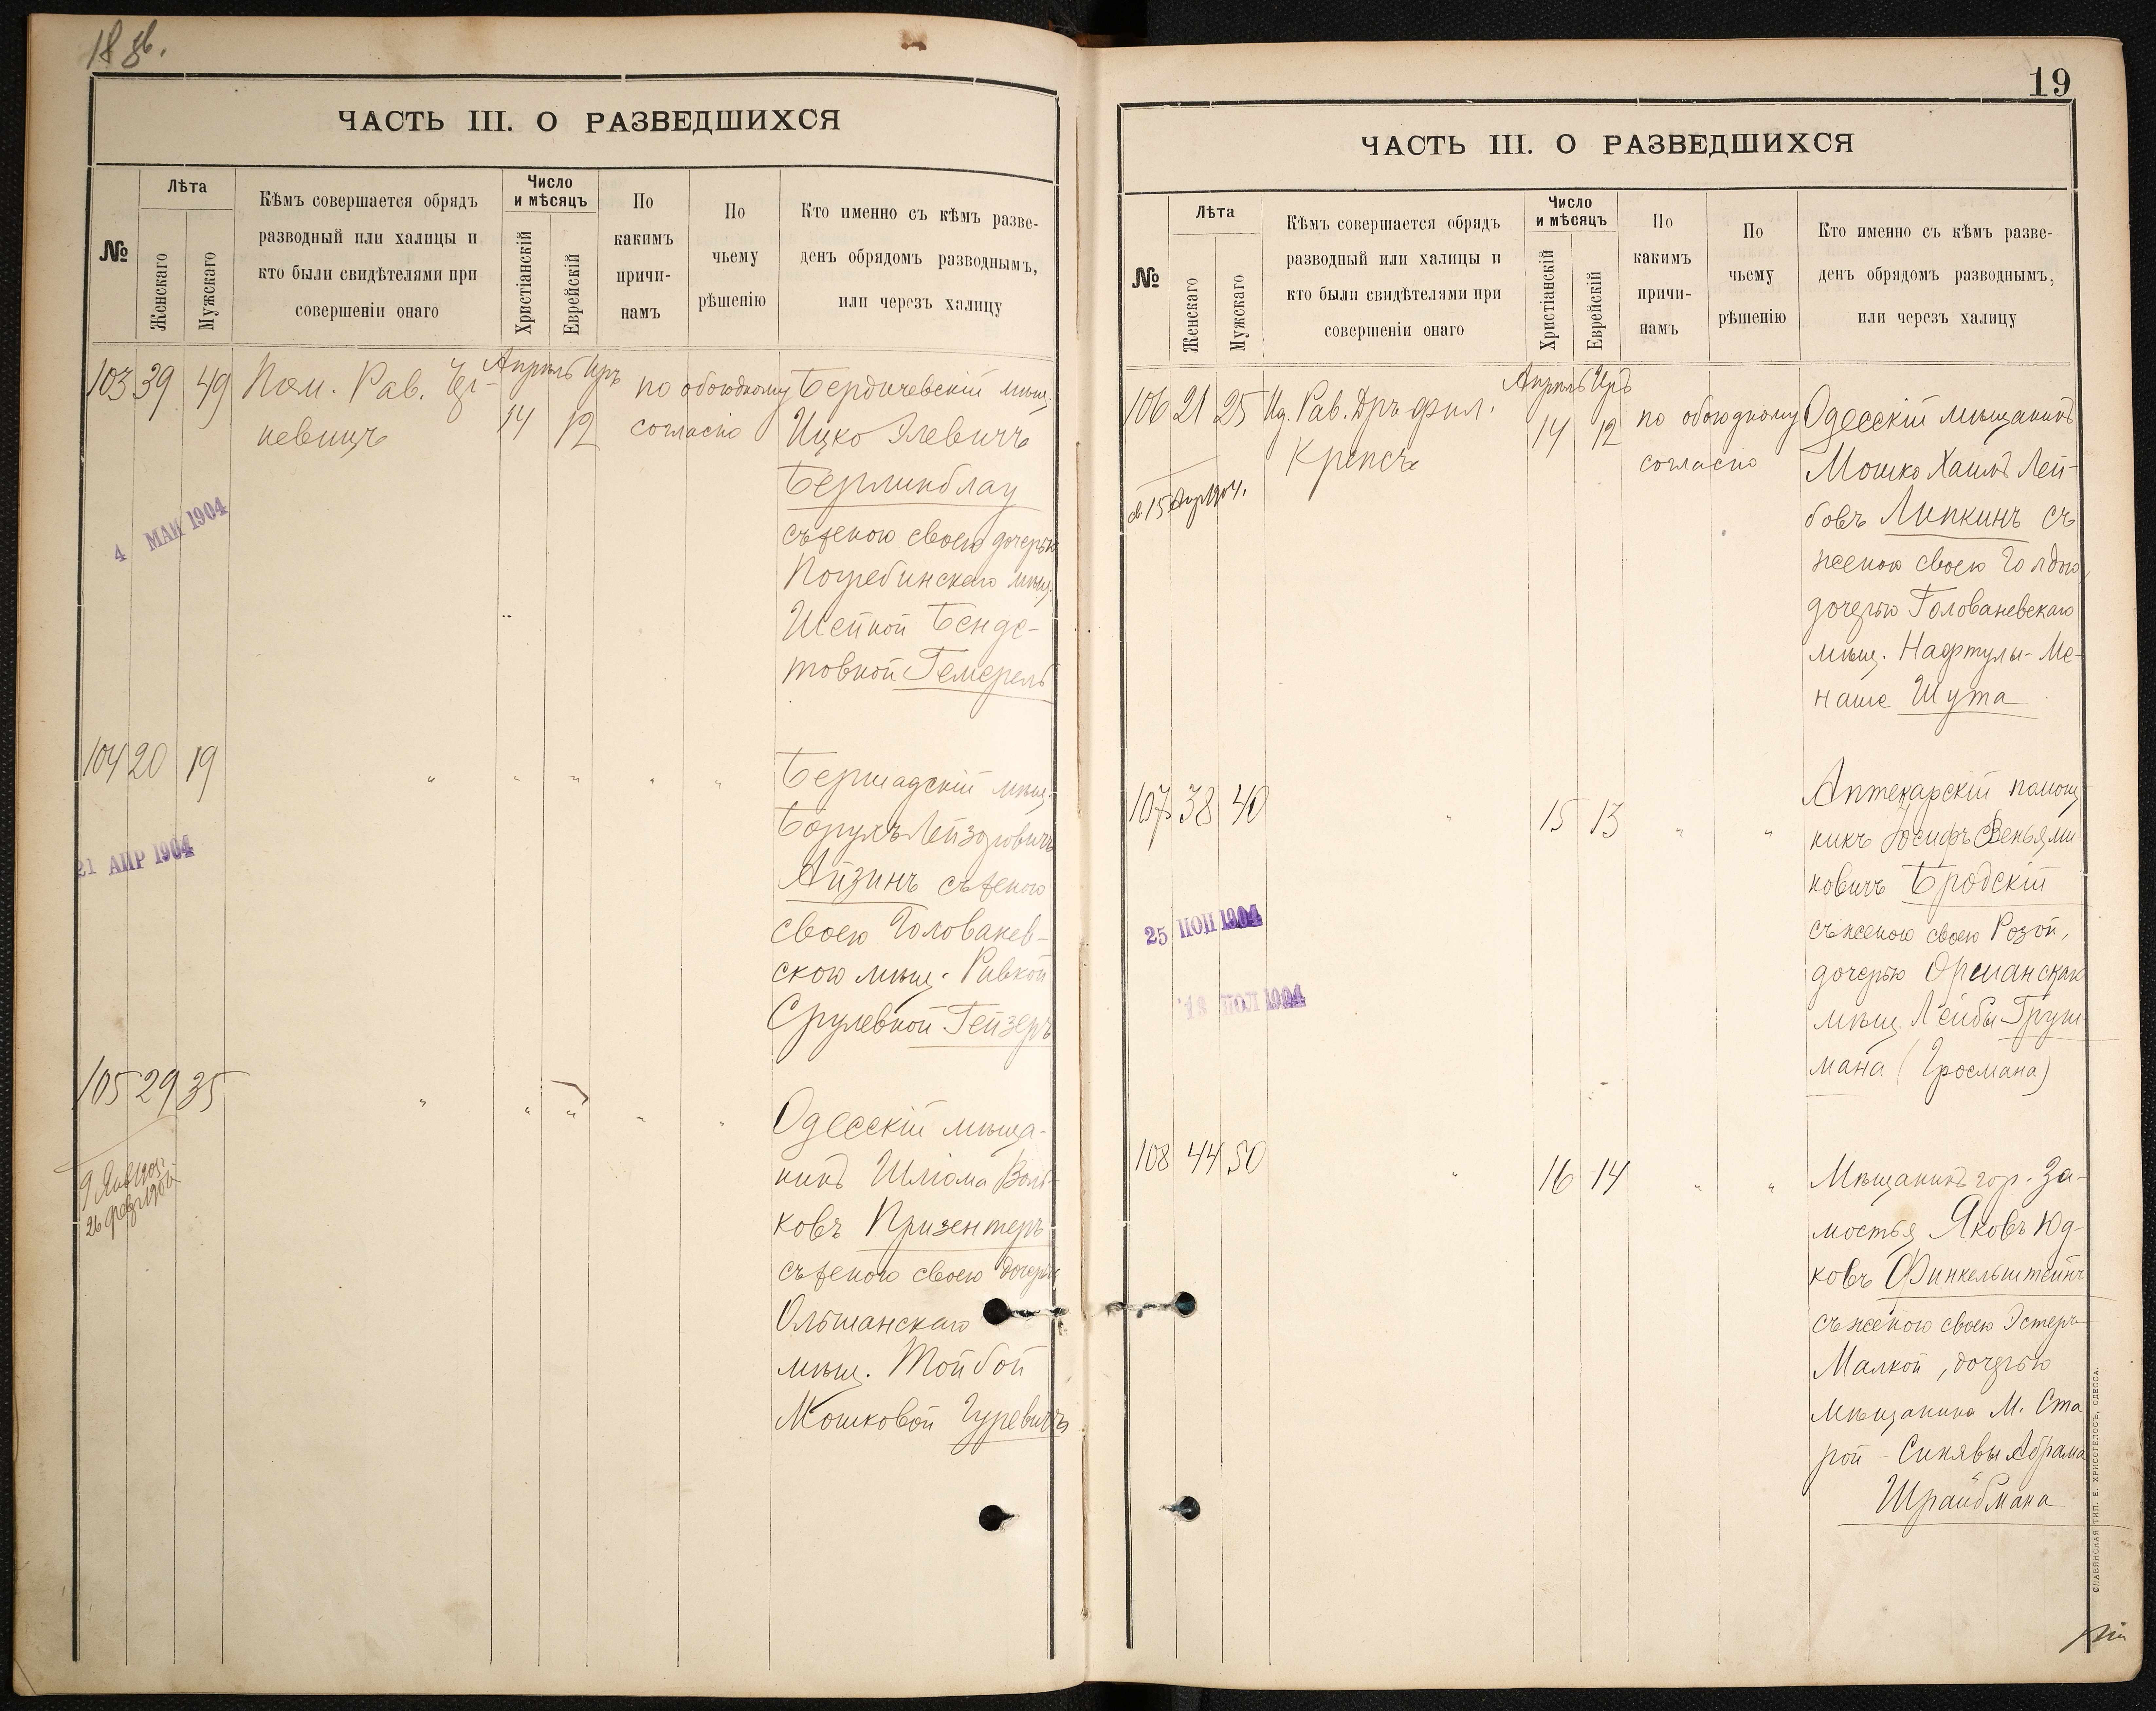 18 об.
ЧАСТЬ III. О РАЗВЕДШИХСЯ
№
Лѣта
Женскаго
Мужскаго
Кѣмъ совершается обрядъ
разводный или халицы и
кто были свидѣтелями при
совершеніи онаго
Число
и мѣсяцъ
Христіанскій
Еврейскій
По
какимъ
причи-
намъ
По
чьему
рѣшенію
Кто именно съ кѣмъ разве-
денъ обрядомъ разводнымъ,
или черезъ халицу
103 39 49 Пом. Рав.
Апрѣль Иръ
14 12
по обоюдному
согласію
Бердичевскій мѣщ.
Ицко Элевичъ
Берлинблау
съ женою своею дочерью
Погребинскаго мѣщ.
Шейной Бенде-
товной Гемерель
4 МАЙ 1904
104 20 19 " " " " "
Бершадскій мѣщ.
Борухъ Лейзоровичъ
Айзинъ съ женою
своею Голованев-
скою мѣщ. Ривкой
Срулевной Гейзеръ
21 АПР 1904
105 29 35 " " " " "
Одесскій мѣща-
нинъ Шліома Воль-
ковъ Призентеръ
съ женою своею дочерью
Ольшанскаго
мѣщ. Тойбой
Мошковой Гуревичъ
19
ЧАСТЬ III. О РАЗВЕДШИХСЯ
№
Лѣта
Женскаго
Мужскаго
Кѣмъ совершается обрядъ
разводный или халицы и
кто были свидѣтелями при
совершеніи онаго
Число
и мѣсяцъ
Христіанскій
Еврейскій
По
какимъ
причи-
намъ
По
чьему
рѣшенію
Кто именно съ кѣмъ разве-
денъ обрядомъ разводнымъ,
или черезъ халицу
106 21 25 Рав. Дръ фил.
Крепсъ
Апрѣль Иръ
14 12
по обоюдному
согласію
Одесскій мѣщанинъ
Мошко Хаимъ Лей-
бовъ Липкинъ съ
женою своею Голдою,
дочерью Голованевскаго
мѣщ. Нафтулы-Ме-
наше Шута
15 Апр 1904.
107 38 40 " 15 13 " "
Аптекарскій помощ-
никъ Іосифъ Веньями
новичъ Бродскій
съ женою своею Розой,
дочерью Оршанскаго
мѣщ. Лейбы Груш-
мана (Гросмана)
25 ІЮН 1904
13 ІЮЛ 1904
108 44 50 " 16 14 " "
Мѣщанинъ гор. За-
мостья Яковъ Юд-
ковъ Финкельштейнъ
съ женою своею Эстеръ
Малкой, дочерью
мѣщанина м. Ста
рой-Синявы Абрама
Шрайбмана
СЛАВЯНСКАЯ ТИП. Е. ХРИСОГЕЛОСЪ, ОДЕССА.